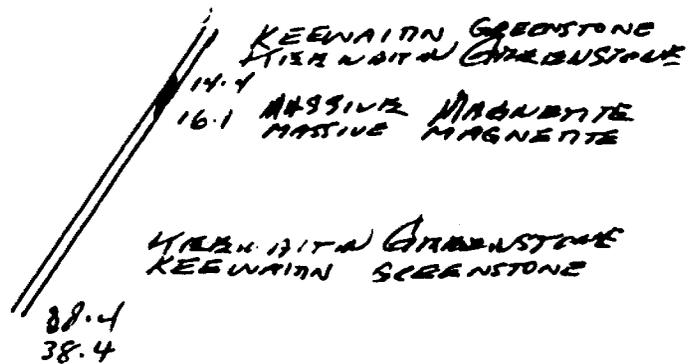 KEEWAITIN GREENSTONE
KEEWAITIN GREENSTONE
14.4
16.1 MASSIVE MAGNETITE
MASSIVE MAGNETITE
KEEWAITIN GREENSTONE
KEEWAITIN GREENSTONE
38.4
38.4